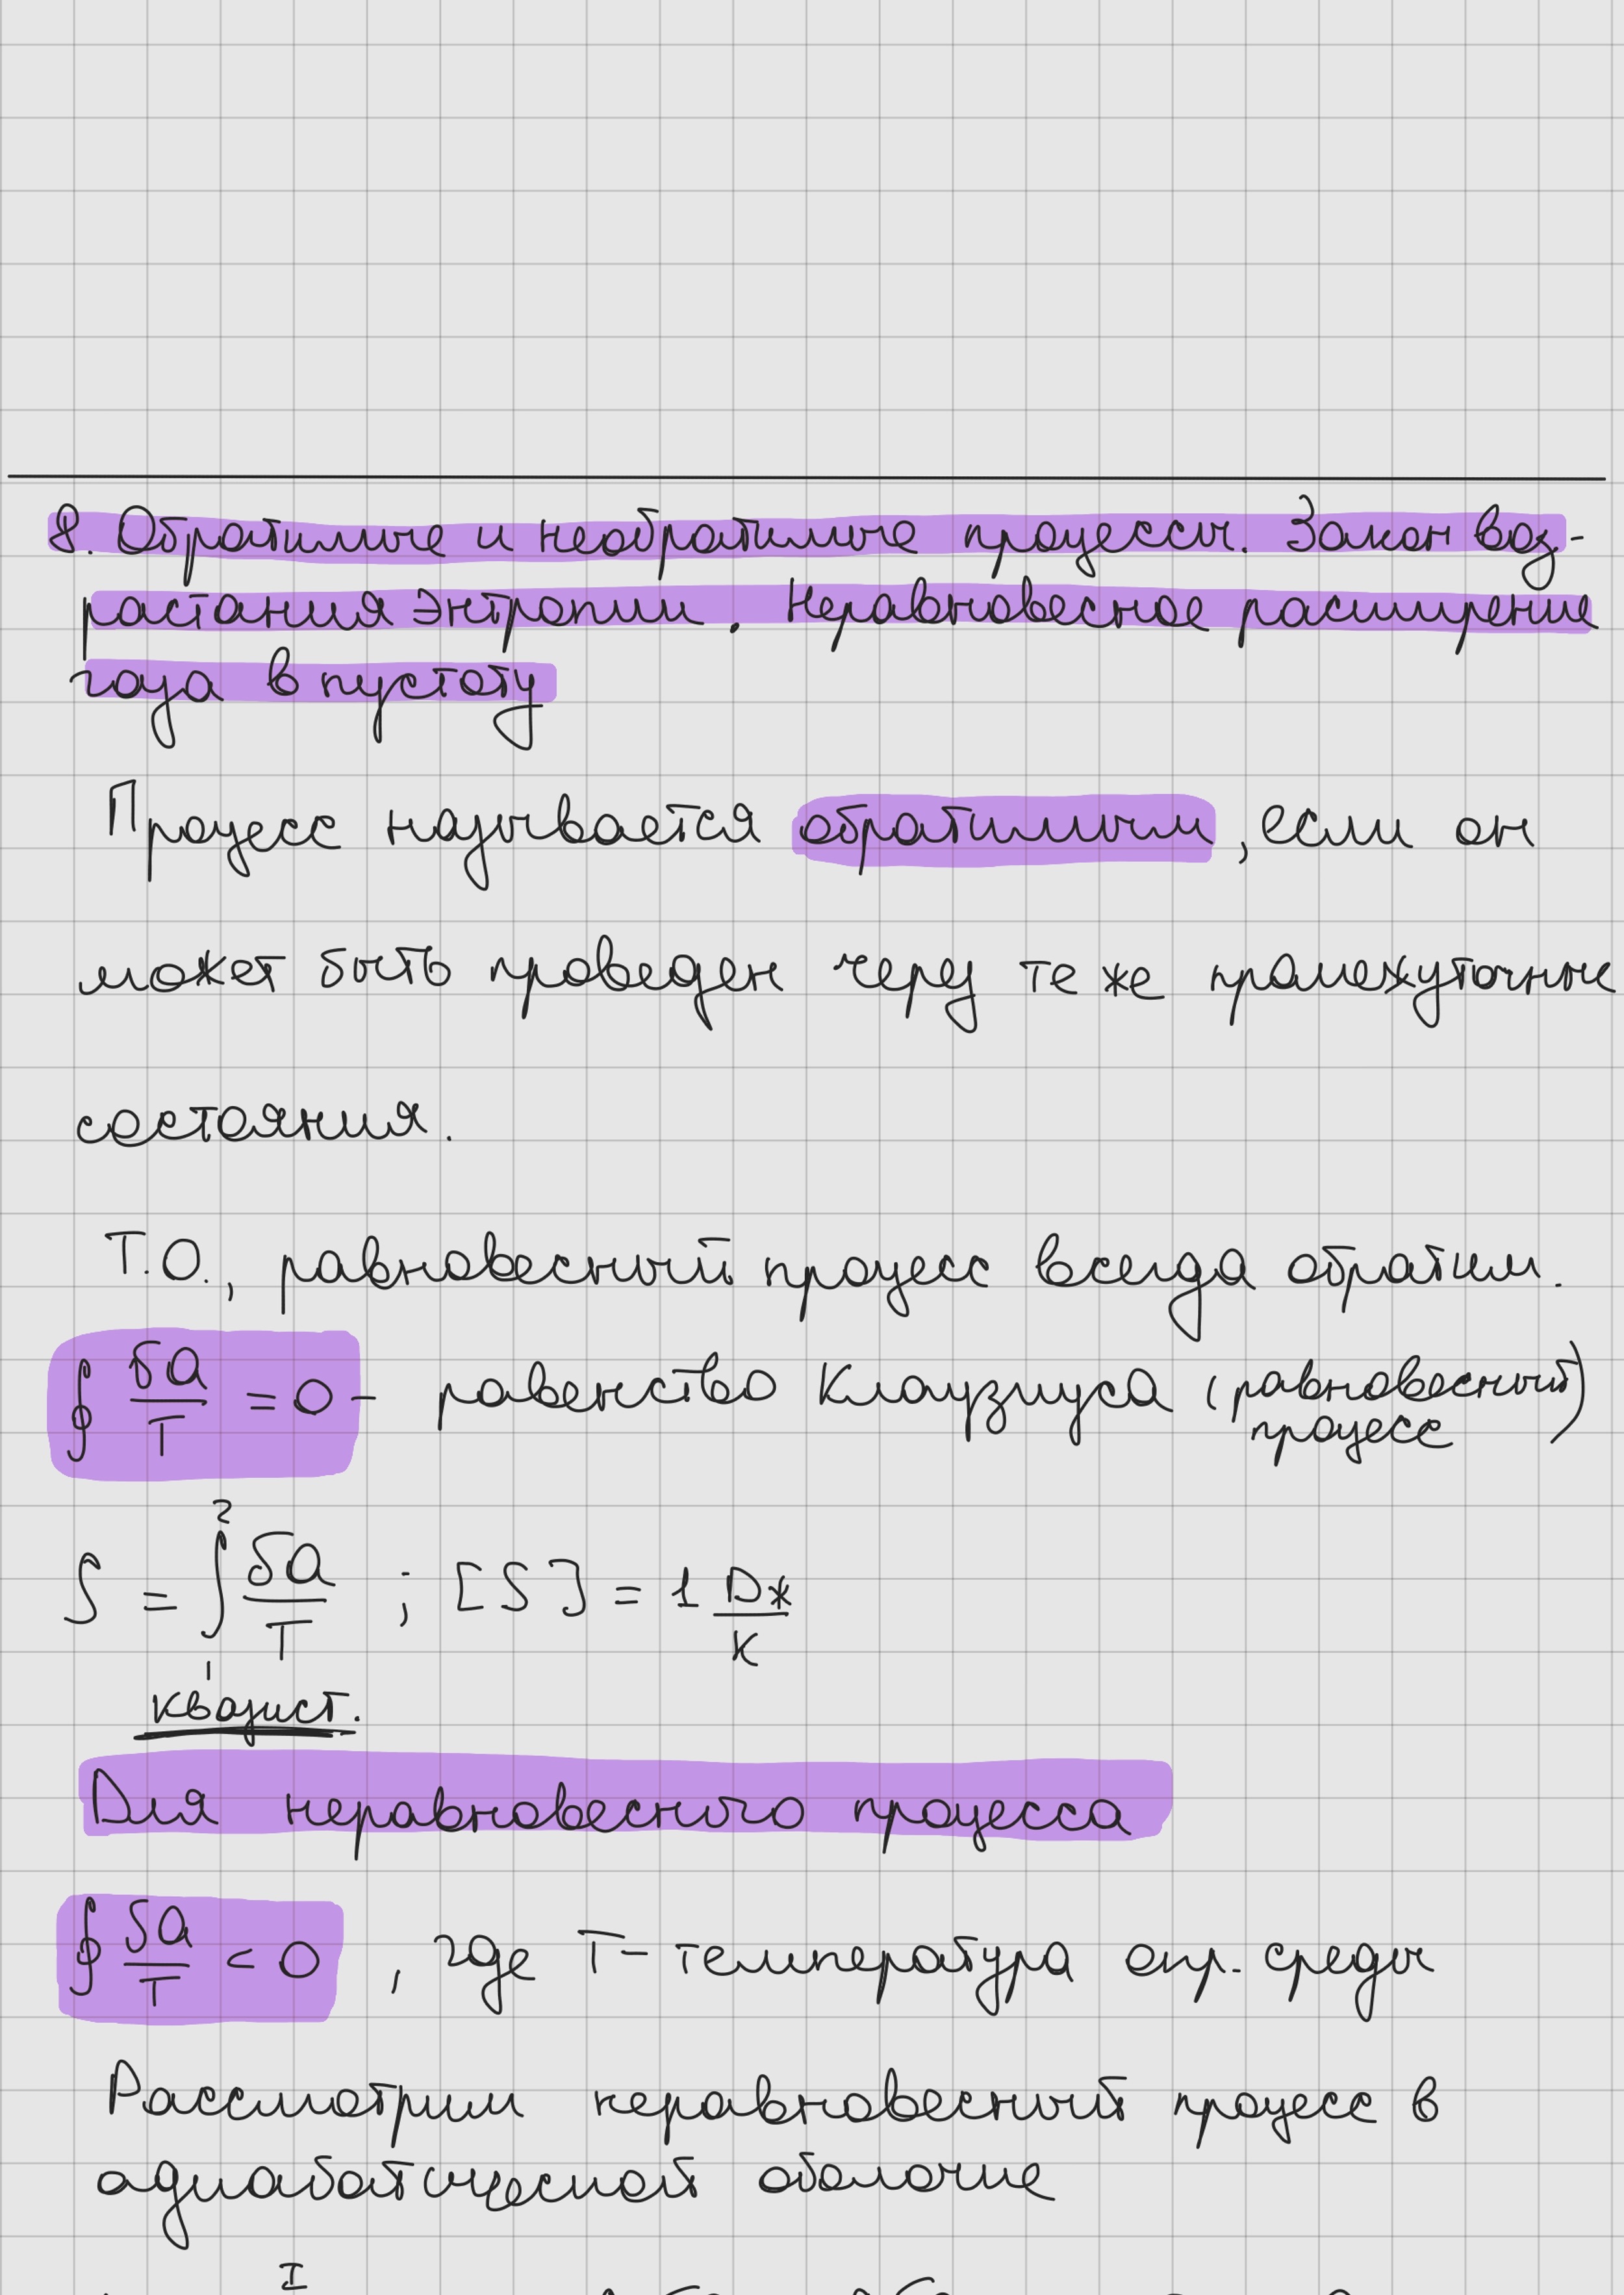 8. Обратимые и необратимые процессы. Закон воз-
растания энтропии. Неравновесное расширение
газа в пустоту
Процесс называется обратимым, если он
может быть проведен через те же промежуточные
состояния.
Т.О., равновесный процесс всегда обратим.
∮ δQ/T = 0 - равенство Клаузиуса (равновесный процесс)
S = ∫₁² δQ/T ; [S] = 1 Дж/К
квазист.
Для неравновесного процесса
∮ δQ/T < 0 , где T - температура окр. среды
Рассмотрим неравновесный процесс в
адиабатической оболочке
I